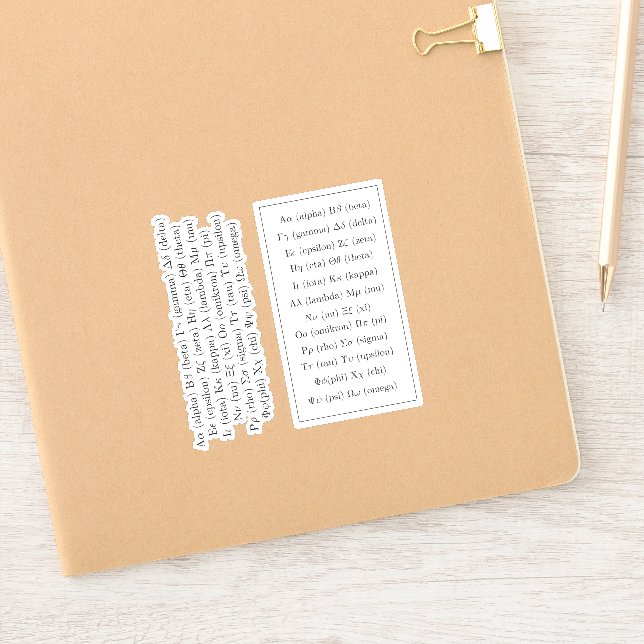 Αα (alpha) Ββ (beta) Γγ (gamma) Δδ (delta)
Εε (epsilon) Ζζ (zeta) Ηη (eta) Θθ (theta)
Ιι (iota) Κκ (kappa) Λλ (lambda) Μμ (mu)
Νν (nu) Ξξ (xi) Οο (omikron) Ππ (pi)
Ρρ (rho) Σσ (sigma) Ττ (tau) Υυ (upsilon)
Φφ(phi) Χχ (chi) Ψψ (psi) Ωω (omega)
Αα (alpha) Ββ (beta)
Γγ (gamma) Δδ (delta)
Εε (epsilon) Ζζ (zeta)
Ηη (eta) Θθ (theta)
Ιι (iota) Κκ (kappa)
Λλ (lambda) Μμ (mu)
Νν (nu) Ξξ (xi)
Οο (omikron) Ππ (pi)
Ρρ (rho) Σσ (sigma)
Ττ (tau) Υυ (upsilon)
Φφ(phi) Χχ (chi)
Ψψ (psi) Ωω (omega)